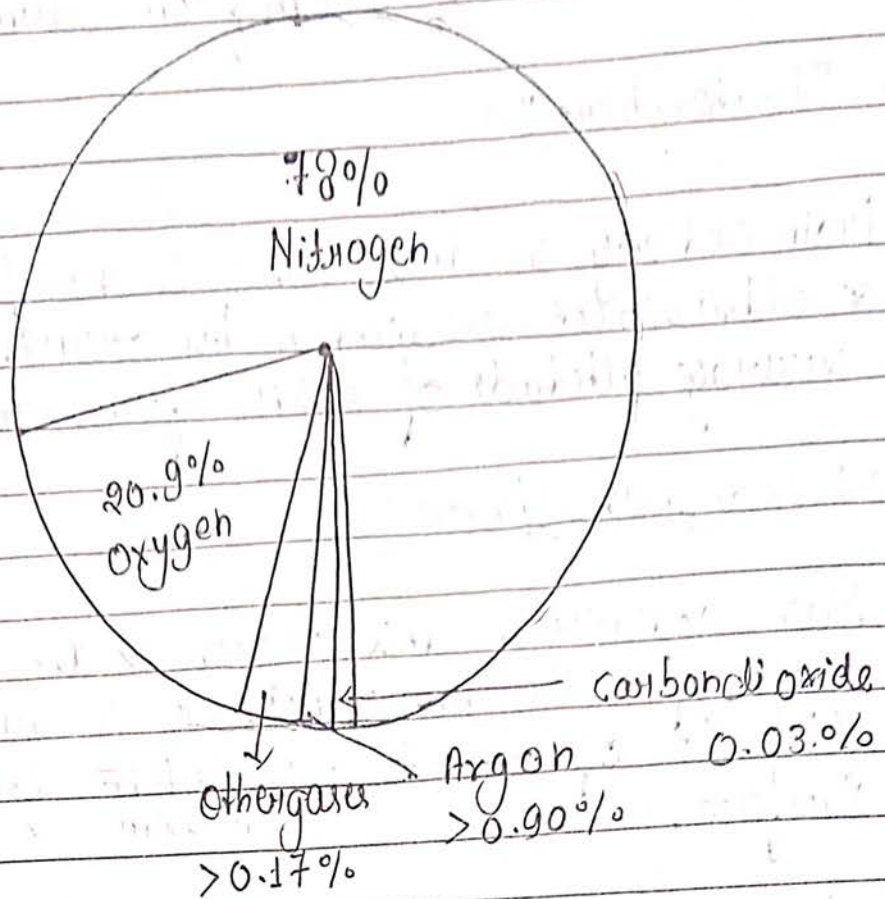 78%
Nitrogen
20.9%
oxygen
carbondioxide
0.03.%
Argon
>0.90%
Othergases
>0.17%